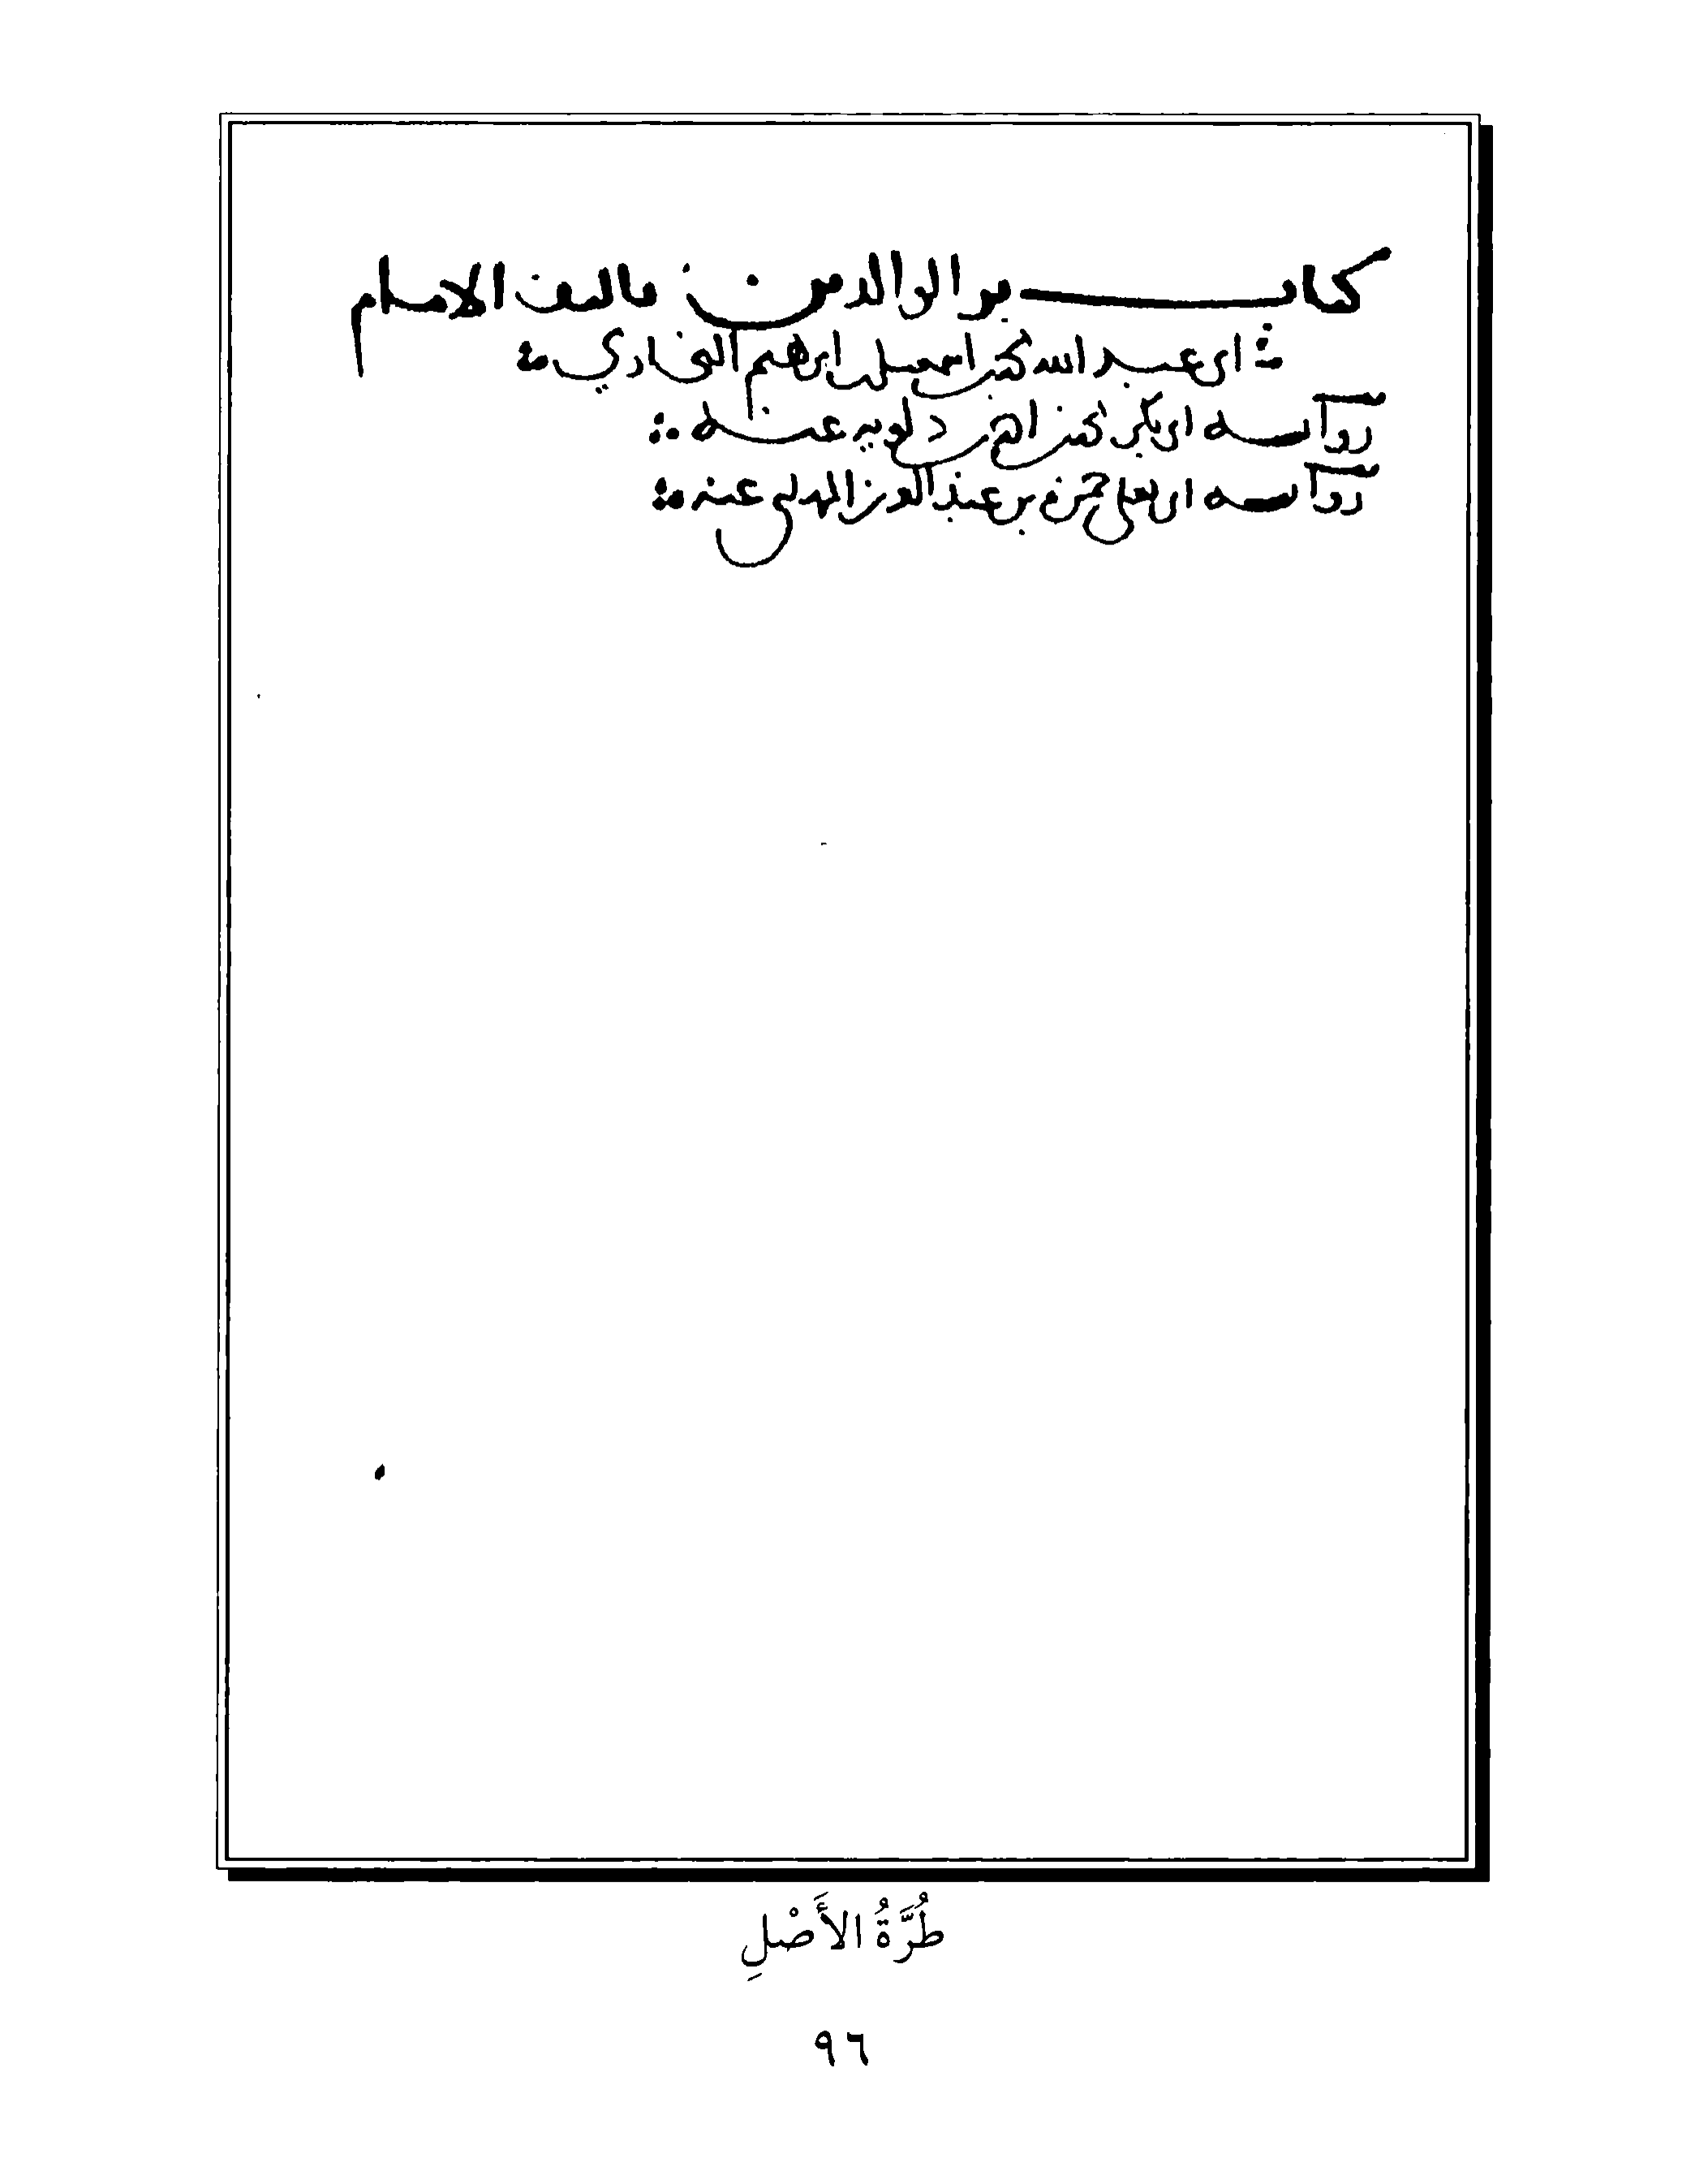 كتاب بر الوالدين تاليف الامام
ابي عبد الله محمد بن اسمعيل بن ابرهيم البخاري
رواية ابي بكر محمد بن احمد بن دلويه عنه
رواية ابي يعلى حمزة بن عبد العزيز المهلبي عنه
طُرَّةُ الأَصْلِ
٩٦